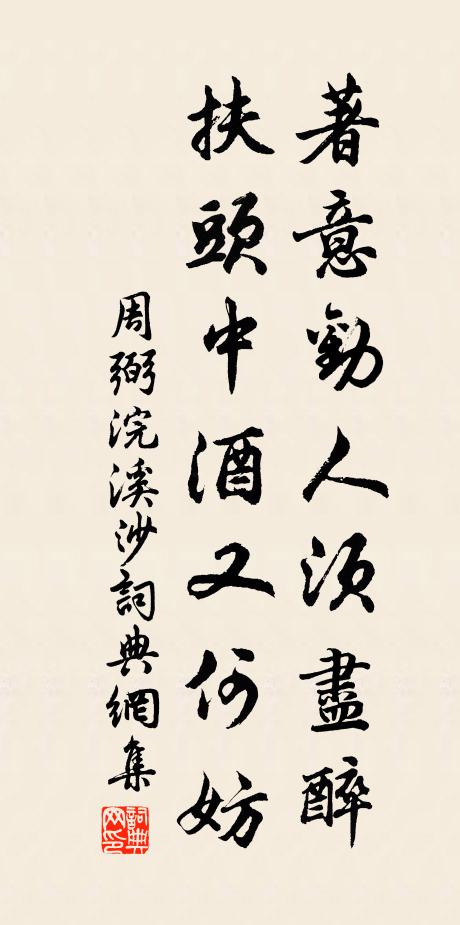 著意勸人須盡醉
扶頭中酒又何妨
周弼浣溪沙詞典網集
詞典網印